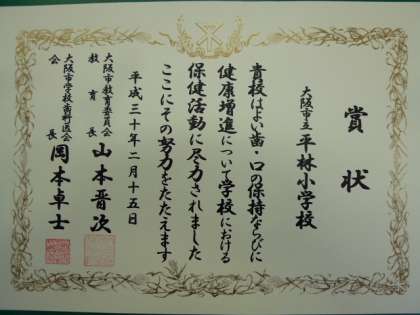 賞状
大阪市立 平林小学校
貴校はよい歯・口の保持ならびに
健康増進について学校における
保健活動に尽力されました
ここにその努力をたたえます
平成三十年二月十五日
大阪市教育委員会
教育長 山本晋次
大阪市学校歯科医会
会長 岡本卓士